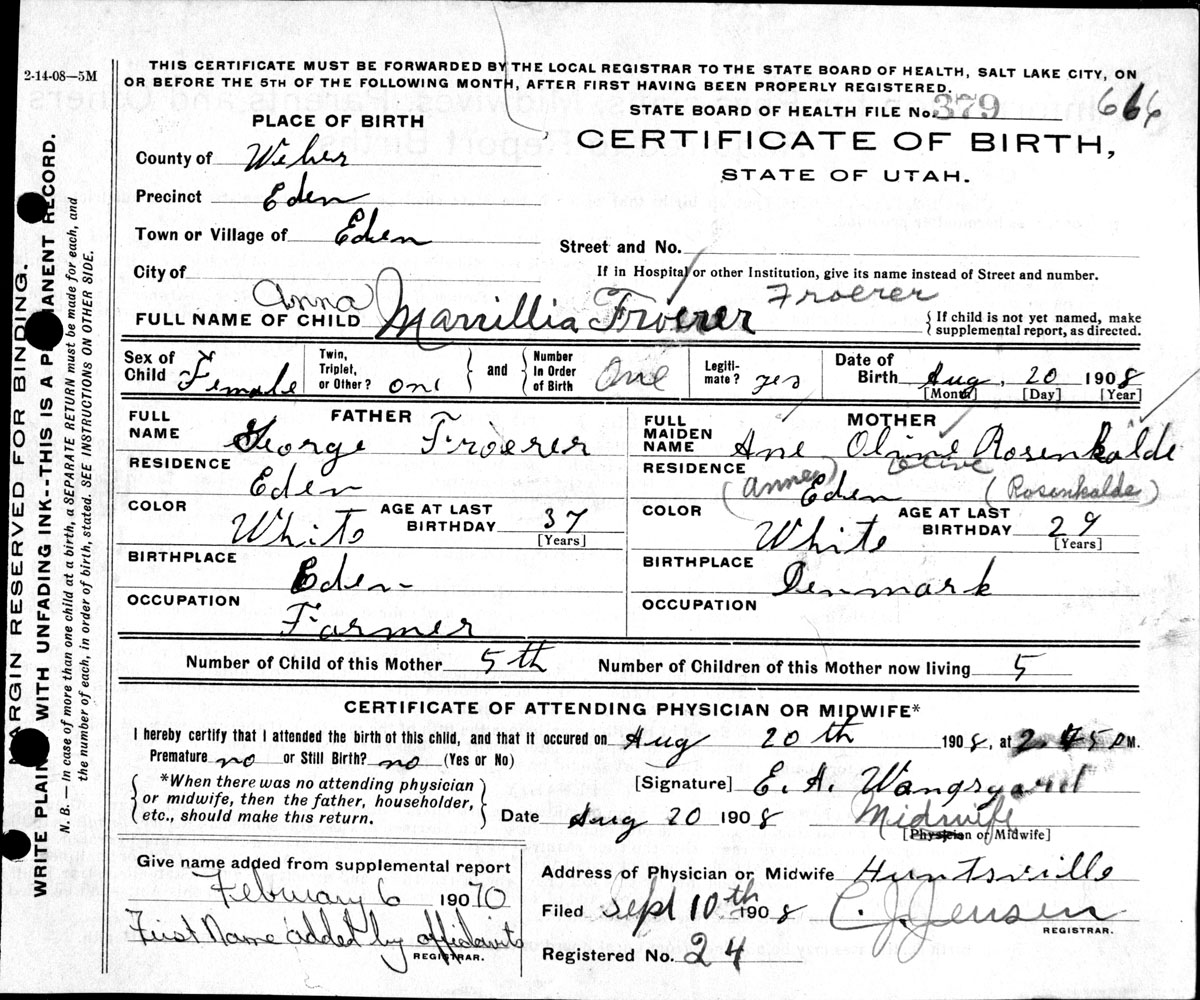 2-14-08—5M
THIS CERTIFICATE MUST BE FORWARDED BY THE LOCAL REGISTRAR TO THE STATE BOARD OF HEALTH, SALT LAKE CITY, ON
OR BEFORE THE 5TH OF THE FOLLOWING MONTH, AFTER FIRST HAVING BEEN PROPERLY REGISTERED.
STATE BOARD OF HEALTH FILE No. 379 666
PLACE OF BIRTH
CERTIFICATE OF BIRTH,
STATE OF UTAH.
County of Weber
Precinct Eden
Town or Village of Eden
Street and No.
City of
If in Hospital or other Institution, give its name instead of Street and number.
FULL NAME OF CHILD Anna Marrillia Froerer Froerer
{ If child is not yet named, make
supplemental report, as directed.
Sex of Child Female
Twin, Triplet, or Other? one
and
Number In Order of Birth One
Legiti- mate? yes
Date of Birth Aug, 20 1908
[Month] [Day] [Year]
FATHER
FULL NAME George Froerer
RESIDENCE Eden
COLOR White
AGE AT LAST BIRTHDAY 37
[Years]
BIRTHPLACE Eden
OCCUPATION Farmer
MOTHER
FULL MAIDEN NAME Ane Oline Rosenkalde
RESIDENCE Eden
(Annee) Olive (Rosenkalde)
COLOR White
AGE AT LAST BIRTHDAY 29
[Years]
BIRTHPLACE Denmark
OCCUPATION
Number of Child of this Mother 5th Number of Children of this Mother now living 5
CERTIFICATE OF ATTENDING PHYSICIAN OR MIDWIFE*
I hereby certify that I attended the birth of this child, and that it occured on Aug 20th 1908, at 2.45 PM.
Premature no or Still Birth? no (Yes or No)
*When there was no attending physician
or midwife, then the father, householder,
etc., should make this return.
[Signature] E. A. Wangsgard
Date Aug 20 1908 Midwife
[Physician or Midwife]
Give name added from supplemental report
February 6 19070
First Name added by affidavits
REGISTRAR.
Address of Physician or Midwife Huntsville
Filed Sept 10th 1908 C. J. Jensen
REGISTRAR.
Registered No. 24
MARGIN RESERVED FOR BINDING.
WRITE PLAINLY WITH UNFADING INK--THIS IS A PERMANENT RECORD.
N. B. — In case of more than one child at a birth, a SEPARATE RETURN must be made for each, and
the number of each, in order of birth, stated. SEE INSTRUCTIONS ON OTHER SIDE.